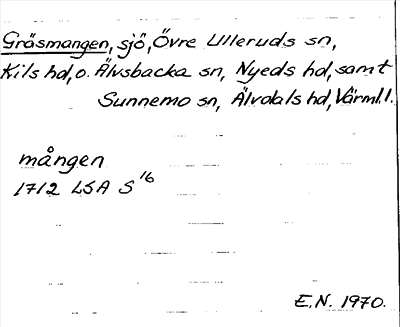 Gräsmangen, sjö, Övre Ulleruds sn,
Kils hd, o. Älvsbacka sn, Nyeds hd, samt
Sunnemo sn, Älvdals hd, Värml. l.
mången
1712 LSA S 16
E.N. 1970.